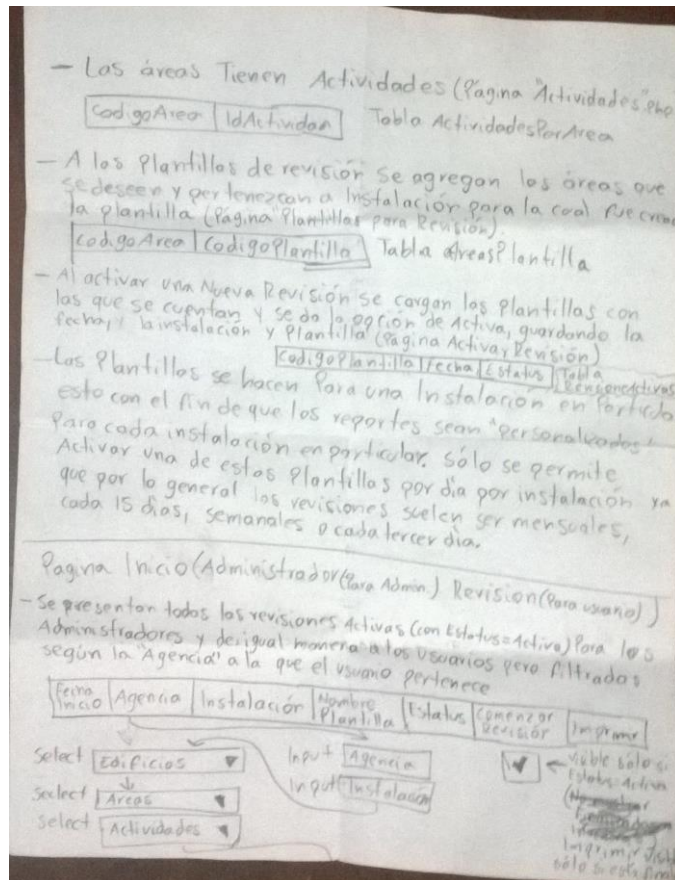 - Las áreas Tienen Actividades (Página "Actividades".php
CodigoArea | IdActividad Tabla ActividadesPorArea
- A las Plantillas de revisión se agregan las áreas que
se deseen y pertenezcan a Instalación para la cual fue
la plantilla (Página "Plantillas para Revisión).
CodigoArea | CodigoPlantilla Tabla AreasPlantilla
- Al activar una Nueva Revisión se cargan las Plantillas con
las que se cuentan y se da la opción de Activa, guardando la
fecha, la instalación y Plantilla (Página Activar Revisión)
CodigoPlantilla | Fecha | Estatus | Tabla
- Las Plantillas se hacen Para una Instalación en Particular
esto con el fin de que los reportes sean "personalizados"
Para cada instalación en particular. Sólo se permite
Activar una de estas Plantillas por día por instalación ya
que por lo general las revisiones suelen ser mensuales,
cada 15 días, semanales o cada tercer día.
Pagina Inicio (Administrador (Para Admin.) Revision (Para usuario))
- Se presentan todas las revisiones Activas (con Estatus=Activa) Para los
Administradores y de igual manera a los usuarios pero filtradas
según la "Agencia" a la que el usuario pertenece
Fecha Inicio | Agencia | Instalación | Nombre Plantilla | Estatus | Comenzar Revisión | Imprimir
Select Edificios
Input Agencia
visible sólo si
Estatus Activa
select Areas
Input Instalación
select Actividades
Imprimir
sólo si está